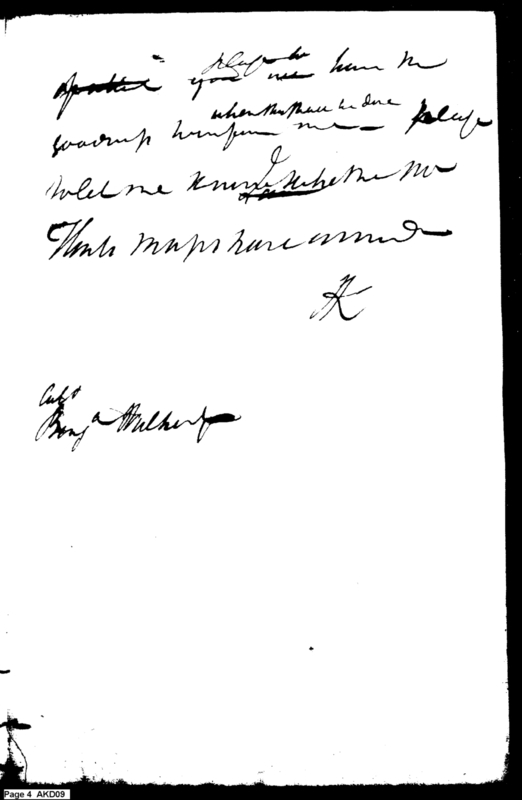 please to
you have the
when this shall be done
goodness to inform me — please
to let me know whether
Monts maps have arrived
K
Capt
Benja Walker
Page 4 AKD09